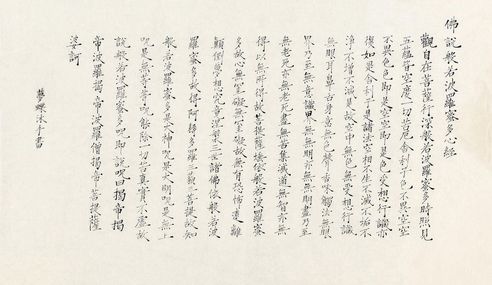 佛說般若波羅蜜多心經
觀自在菩薩行深般若波羅蜜多時照見
五蘊皆空度一切苦厄舍利子色不異空空
不異色色即是空空即是色受想行識亦
復如是舍利子是諸法空相不生不滅不垢不
淨不增不減是故空中無色無受想行識
無眼耳鼻舌身意無色聲香味觸法無眼
界乃至無意識界無無明亦無無明盡乃至
無老死亦無老死盡無苦集滅道無智亦無
得以無所得故菩提薩埵依般若波羅蜜
多故心無罣礙無罣礙故無有恐怖遠離
顛倒夢想究竟涅槃三世諸佛依般若波
羅蜜多故得阿耨多羅三藐三菩提故知
般若波羅蜜多是大神咒是大明咒是無上
咒是無等等咒能除一切苦真實不虛故
說般若波羅蜜多咒即說咒曰揭帝揭
帝波羅揭帝波羅僧揭帝菩提薩
婆訶
夢蝶沐手書